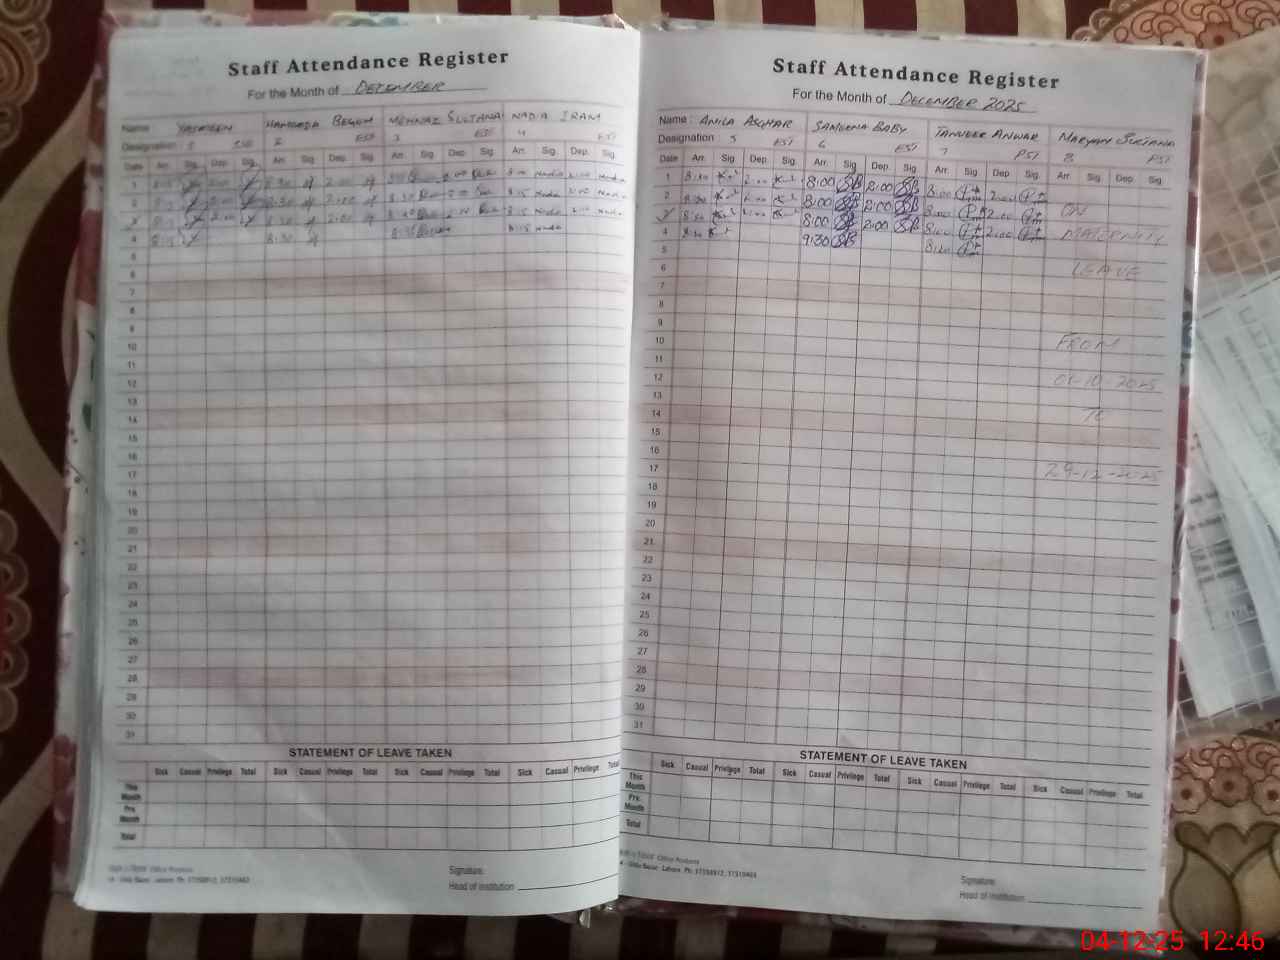 Staff Attendance Register
For the Month of DECEMBER
Name : YASMEEN HAMEEDA BEGUM MEHNAZ SULTANA NADIA IRAM
Designation : 1 2 EST 3 EST 4 EST
Date Arr. Sig. Dep. Sig. Arr. Sig. Dep. Sig. Arr. Sig. Dep. Sig. Arr. Sig. Dep. Sig.
1 8:30 2:00
2 8:30 2:00 8:30 8:15 Nadia 2:00 Nadia
3 8:30 2:00 8:30 8:15 Nadia 2:00 Nadia
4 8:30 8:30 8:15 Nadia
5
6
7
8
9
10
11
12
13
14
15
16
17
18
19
20
21
22
23
24
25
26
27
28
29
30
31
STATEMENT OF LEAVE TAKEN
Sick Casual Privilege Total Sick Casual Privilege Total Sick Casual Privilege Total Sick Casual Privilege Total
This Month
Prv. Month
Total
Office Products
Urdu Bazar - Lahore Ph: 37358912, 37310463
Signature:
Head of institution
Staff Attendance Register
For the Month of DECEMBER 2025
Name : ANILA ASGHAR SAMEENA BABY TANVEER ANWAR MARYAM SULTANA
Designation : 5 EST 6 EST 7 PST 8 PST
Date Arr. Sig Dep. Sig. Arr. Sig Dep. Sig Arr. Sig Dep Sig. Arr Sig. Dep. Sig.
1 8:30 2:00 8:00 SB 2:00 SB 8:00 2:00
2 8:30 2:00 8:00 SB 2:00 SB 8:00 2:00 ON
3 8:30 2:00 8:00 SB 2:00 SB 8:00 2:00 MATERNITY
4 8:30 9:30 SB 8:00
5
6 LEAVE
7
8
9
10 FROM
11
12 01-10-2025
13
14 TO
15
16
17 29-12-2025
18
19
20
21
22
23
24
25
26
27
28
29
30
31
STATEMENT OF LEAVE TAKEN
Sick Casual Privilege Total Sick Casual Privilege Total Sick Casual Privilege Total Sick Casual Privilege Total
This Month
Prv. Month
Total
Office Products
Urdu Bazar - Lahore Ph: 37358912, 37310463
Signature:
Head of institution
04-12-25 12:46